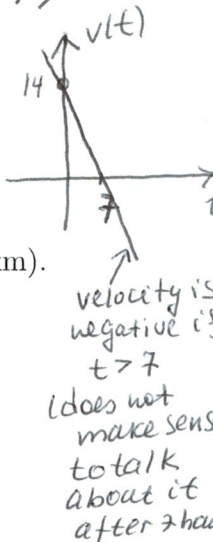 v(t)
14
7
m).
velocity is
negative is
t > 7
(does not
make sens
to talk
about it
after 7 hou